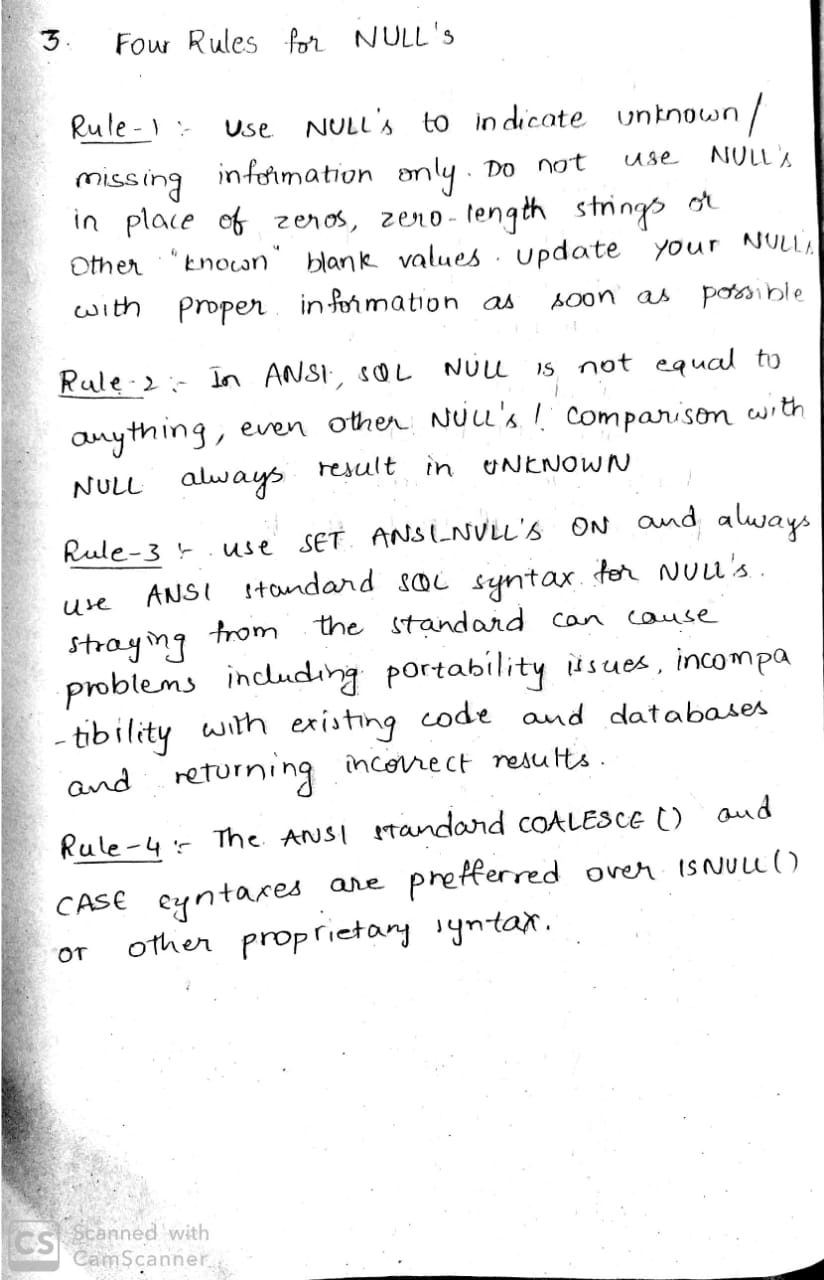 3. Four Rules for NULL's
Rule-1 :- Use NULL's to indicate unknown/
missing information only. Do not use NULL's
in place of zeros, zero-length strings or
Other "known" blank values. Update your NULL's
with proper information as soon as possible
Rule-2 :- In ANSI, SQL NULL is not equal to
anything, even other NULL's! Comparison with
NULL always result in UNKNOWN
Rule-3 :- use SET ANSI_NULL'S ON and always
use ANSI standard SQL syntax for NULL's.
straying from the standard can cause
problems including portability issues, incompa
-tibility with existing code and databases
and returning incorrect results.
Rule-4 :- The ANSI standard COALESCE () and
CASE syntaxes are prefferred over ISNULL()
or other proprietary syntax.
CS Scanned with
CamScanner